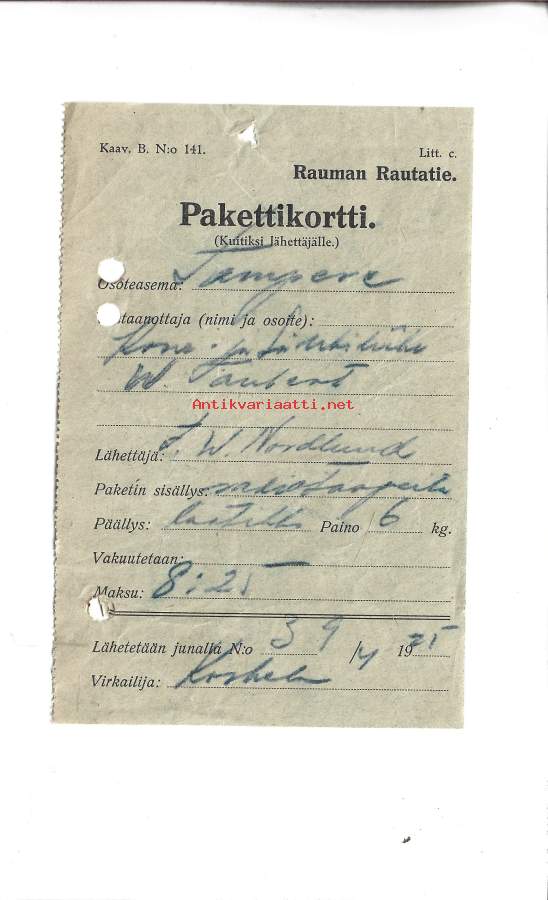 Kaav. B. N:o 141.
Litt. c.
Rauman Rautatie.
Pakettikortti.
(Kuitiksi lähettäjälle.)
Osoteasema: Tampere
taanottaja (nimi ja osoite):
Kone- ja
W. Taubert
Antikvariaatti.net
Lähettäjä: W. Nordlund
Paketin sisällys:
Päällys: laatikko Paino 6 kg.
Vakuutetaan:
Maksu: 8:25
Lähetetään junalla N:o 3 9/4 1925
Virkailija: Koskela